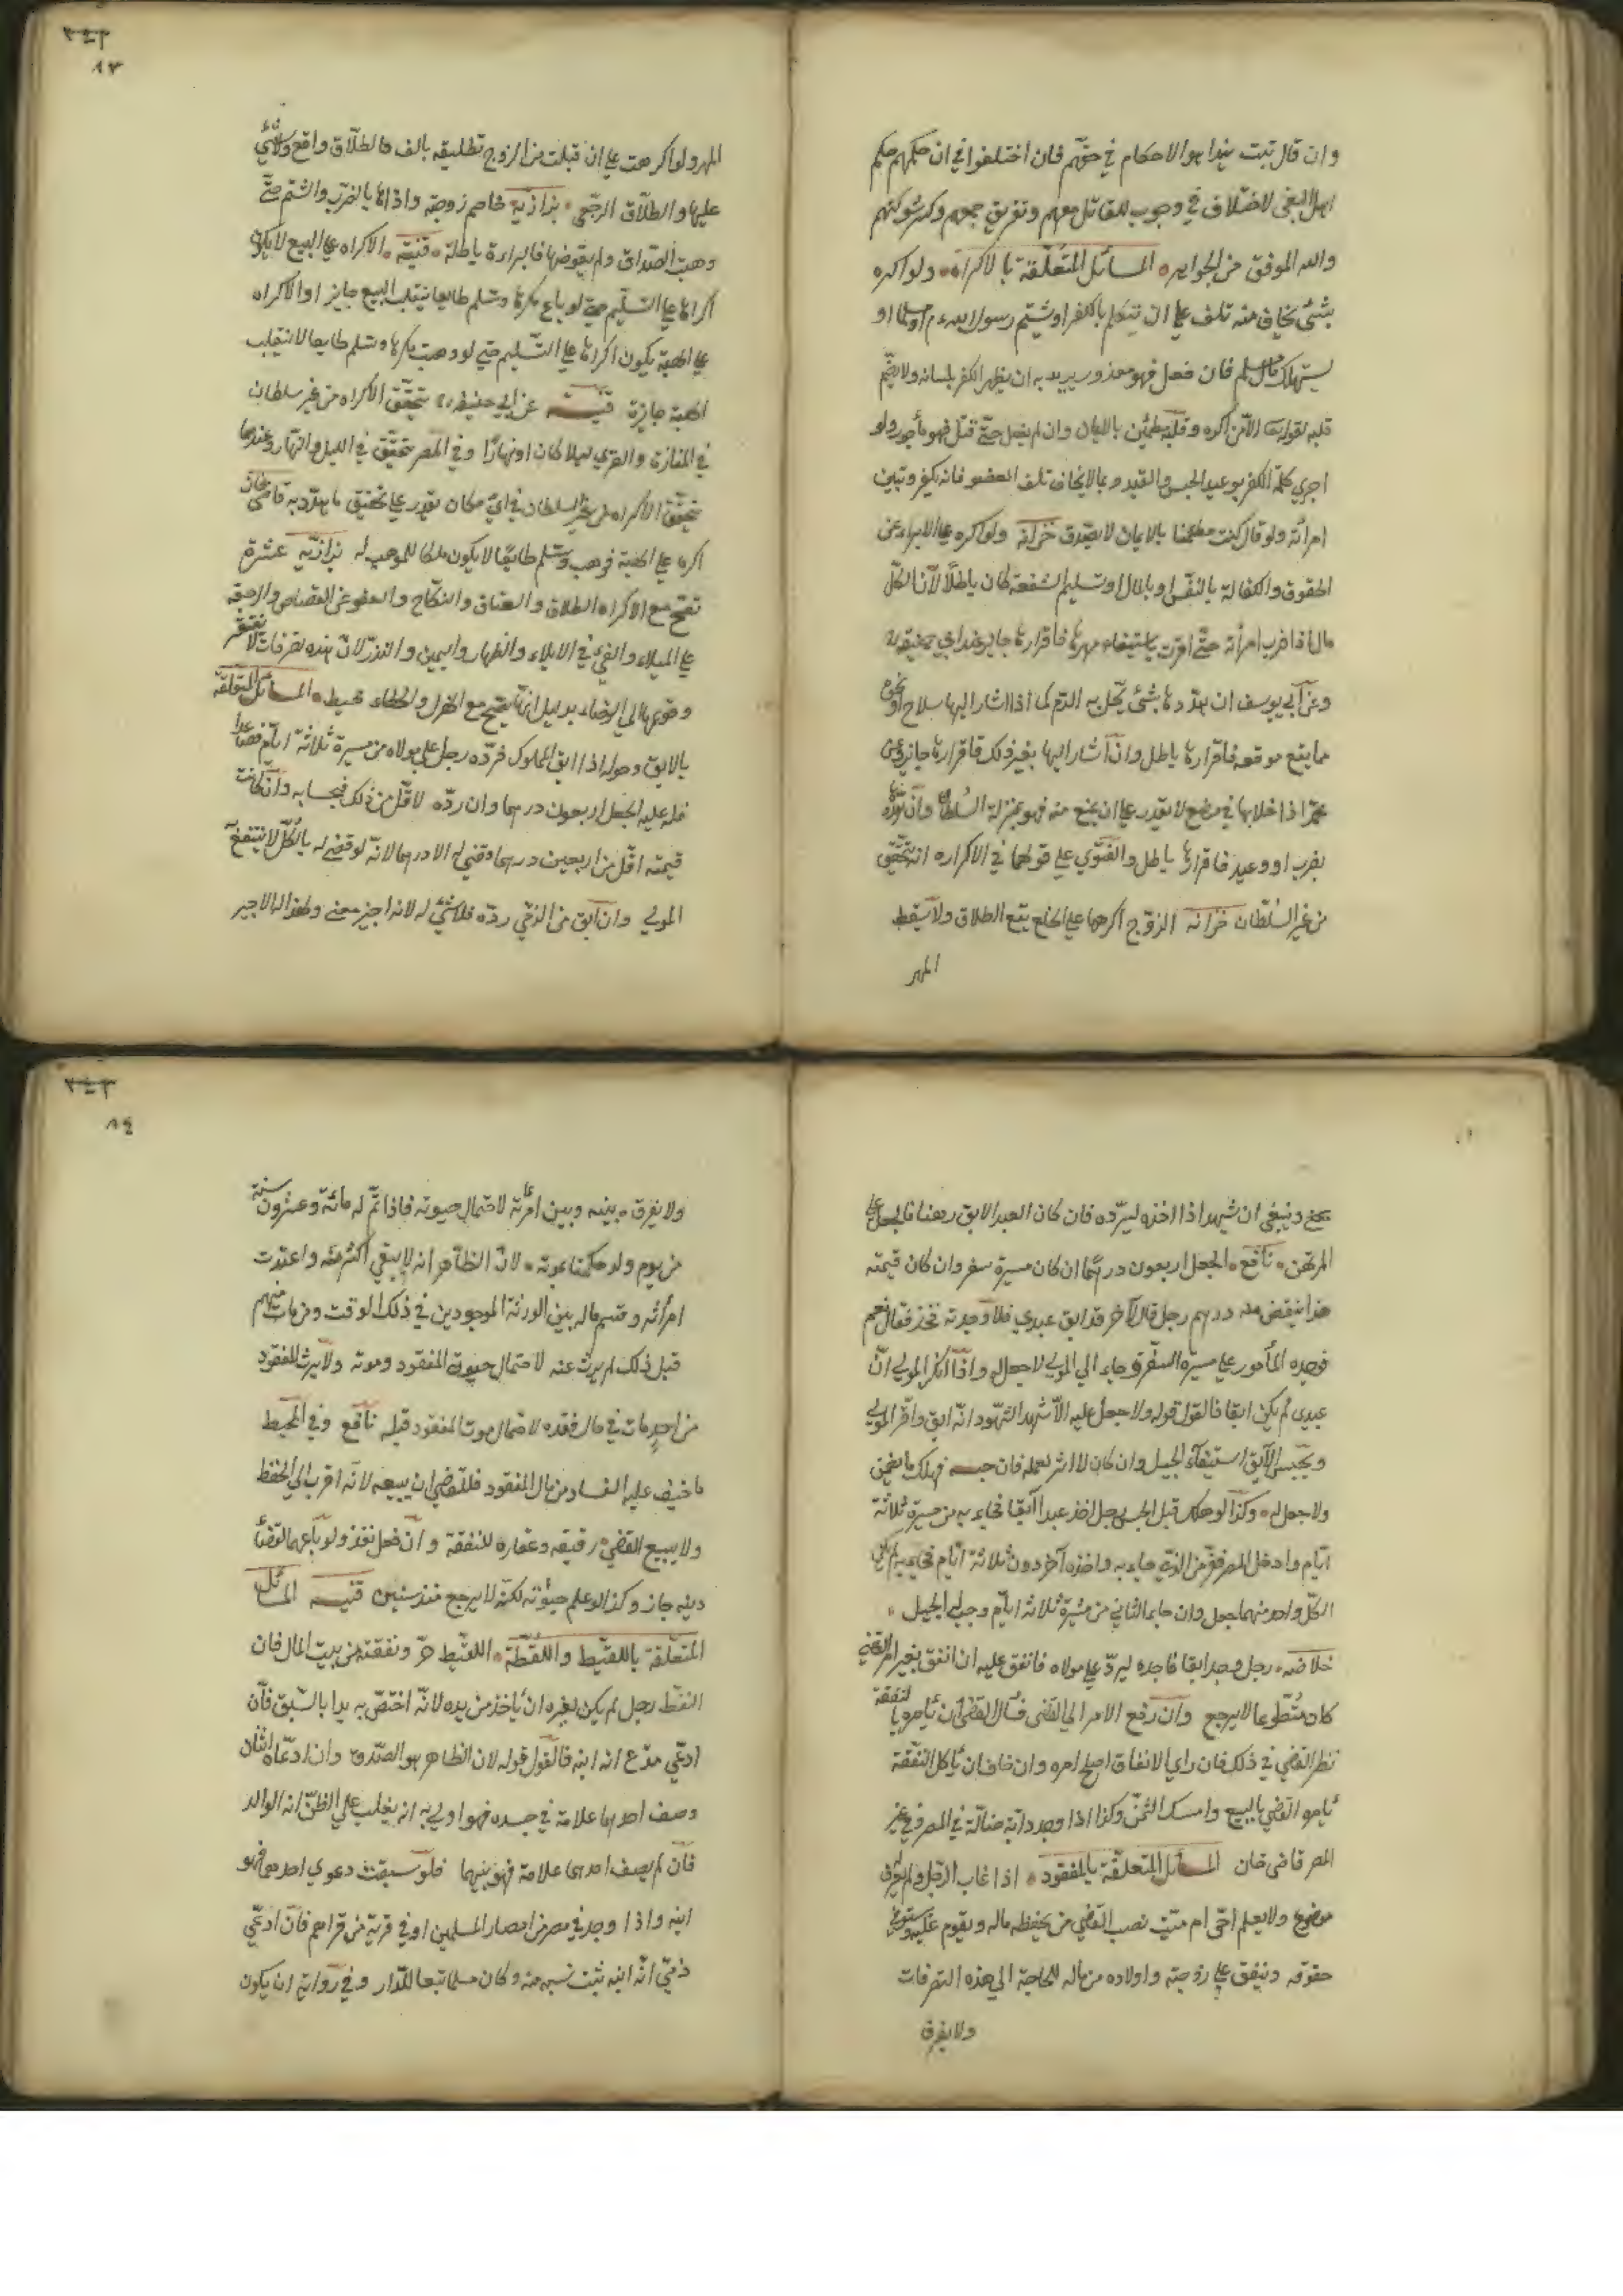 وان قال تبت
اهل البغي لاختلاف في وجوب القاتل معهم وتفريق جمعهم وكسر شوكتهم
والله الموفق من الجوابر المسائل المتعلقة بالاكراه ولو اكره
بشئ يخاف منه تلف على ان يتكلم بالكفر او شتم رسول الله
يستهلك مال مسلم فان فعل فهو معذور يريد به ان يظهر الكفر بلسانه
قلبه لقوله تعالى الا من اكره وقلبه مطمئن بالايمان وان لم يفعل حتى قتل فهو مأجور ولو
اجرى كلمة الكفر بوعيد الحبس والقيد وبما لا يخاف تلف العضو فانه يكفر وتبين
امرأته ولو قال كنت مطمئنا بالايمان لا يصدق خزانه ولو اكره على الابراء عن
الحقوق والكفالة بالنفس او بالمال او تسليم الشفعة كان باطلا
امرأته حتى اقرت باستيفاء مهرها فاقرارها جايز عند ابي حنيفه
وعن ابي يوسف ان هددها بشئ اذا اشار اليها سلاح او نحوه
مما يقع موقعه فاقرارها باطل وان اشار اليها بغير ذلك فاقرارها جايز وعن
محمد اذا خلا بها في موضع لا يقدر على ان يمنع منه فهو بمنزلة السلطان وان هددها
بضرب او وعيد فاقرارها باطل والفتوي على قولهما في الاكراه انه يتحقق
من غير السلطان خزانه الزوج اكرهها على الخلع يقع الطلاق ولا يسقط
المهر
٨٣
المهر ولو اكرهت على ان قبلت من الزوج تطليقه بالف فالطلاق واقع ولا شئ
عليها والطلاق الرجعي بزازيه خاصم زوجته واذاها بالضرب والشتم حتى
وهبت الصداق ولم يعوضها فالبراءة باطلة قنيه الاكراه على البيع لا يكون
اكراها على التسليم حتى لو باع مكرها وسلم طايعا ينقلب البيع جايزا والاكراه
على الهبة يكون اكراها على التسليم حتى لو وهبت مكرها وسلم طايعا لا ينقلب
الهبة جايزة قنيه عن ابي حنيفه يتحقق الاكراه من غير سلطان
في المفازة والقري ليلا كان او نهارا وفي المصر يتحقق في الليل والنهار وعندهما
يتحقق الاكراه من غير السلطان في اي مكان يقدر على تحقيق ما هدد به قاضيخان
اكره على الهبة فوهب وسلم طايعا لا يكون ملكا للموهب له بزازيه عشرة
تصح مع الاكراه الطلاق والعتاق والنكاح والعفو عن القصاص والرجعة
على الميلاء والفئ في الايلاء والظهار واليمين والنذر لان هذه تصرفات لا تفتقر
وقوعها الى الرضاء بدليل انها تصح مع الهزل والخطاء محيط المسائل المتعلقة
بالابق اذا ابق المملوك فرده رجل على مولاه من مسيرة ثلاثة ايام فصاعدا
فله عليه الجعل اربعون درهما وان رده لاقل من ذلك فبحسابه وان كانت
قيمته اقل من اربعين درهما وقضي له الا درهما لانه لو قضي له بالكل لا ينتفع
المولي وان ابق من الذي رده فلا شئ له لانه اجير معني
٨٤
وينبغي ان شهد اذا اخذه ليرده فان كان العبد الابق رهنا فالجعل على
المرتهن نافع الجعل اربعون درهما ان كان مسيرة سفر وان كان قيمته
درهم رجل قال لآخر قد ابق عبدي فلا وجدته فخذ فقال نعم
فوجده المأمور على مسيرة السفر فجاء الي المولي لا جعل له واذا انكر المولي ان
عبدي لم يكن ابقا فالقول قوله ولا جعل عليه الا شهد الشهود انه ابق واقر المولي
ويحبس الابق استيفاء الجعل فان حبسه فهلك ما يضمن
ولا جعل له وكذا لو هلك قبل الحبس رجل اخذ عبدا آبقا فجاء به من مسيرة ثلاثة
ايام وادخل المصر ففر من الذي جاء به واخذه آخر دون ثلاثة ايام
لكل واحد منهما جعل وان جاء الثاني من مسيرة ثلاثة ايام وجب له الجعل
خلاصه رجل وجد ابقا فاخذه ليرد على مولاه فانفق عليه ان انفق بغير امر القضي
كان متطوعا لا يرجع وان رفع الامر الي القضي فسأل القضي ان يأمره بالنفقة
نظر القضي في ذلك فان راي الانفاق اصلح امره وان خاف ان يأكل النفقة
يأمر القضي بالبيع وامسك الثمن وكذا اذا وجد دابة ضالة في المصر وفي غير
المصر قاضي خان المسائل المتعلقة بالمفقود اذا غاب الرجل ولم يعرف
موضوع ولا يعلم احي ام ميت نصب القضي من يحفظه ماله ويقوم عليه ويستوفي
حقوقه وينفق على زوجته واولاده من ماله للحاجة الي هذه التصرفات
ولا يفرق
ولا يفرق بينه وبين امرأته لاحتمال حيوته فاذا تم له مائة وعشرون سنة
من يوم ولد حكمنا بموته لان الظاهر انه لا يبقي اكثر منه واعتدت
امرأته وقسم ماله بين الورثة الموجودين في ذلك الوقت ومن مات منهم
قبل ذلك لم يرث عنه لاحتمال حيوة المفقود وموته ولا يرث المفقود
من احد مات في حال فقده لاحتمال موت المفقود قبله نافع وفي المحيط
ما خيف عليه الفساد من مال المفقود فللقضي ان يبيعه لانه اقرب الي الحفظ
ولا يبيع القضي رقيقه وعقاره للنفقة وان فعل نفذ ولو باعهما لقضاء
دينه جاز وكذا لو علم حيوته لكنه لا يرجع منذ سنين قنيه المسائل
المتعلقة باللقيط واللقطة اللقيط حر ونفقته من بيت المال فان
التقط رجل لم يكن لغيره ان يأخذ من يده لانه اختص به يدا بالسبق فان
ادعي مدع انه ابنه فالقول قوله لان الظاهر هو الصدق وان ادعاه اثنان
وصف احدهما علامة في جسده فهو اولي به انه يغلب على الظن انه الوالد
فان لم يصف احدهما علامة فهو بينهما فلو سبقت دعوي احدهما فهو
ابنه واذا وجد في مصر من امصار المسلمين او في قرية من قراهم فان ادعي
ذمي انه ابنه يثبت نسبه منه وكان مسلما تبعا للدار وفي رواية ان يكون